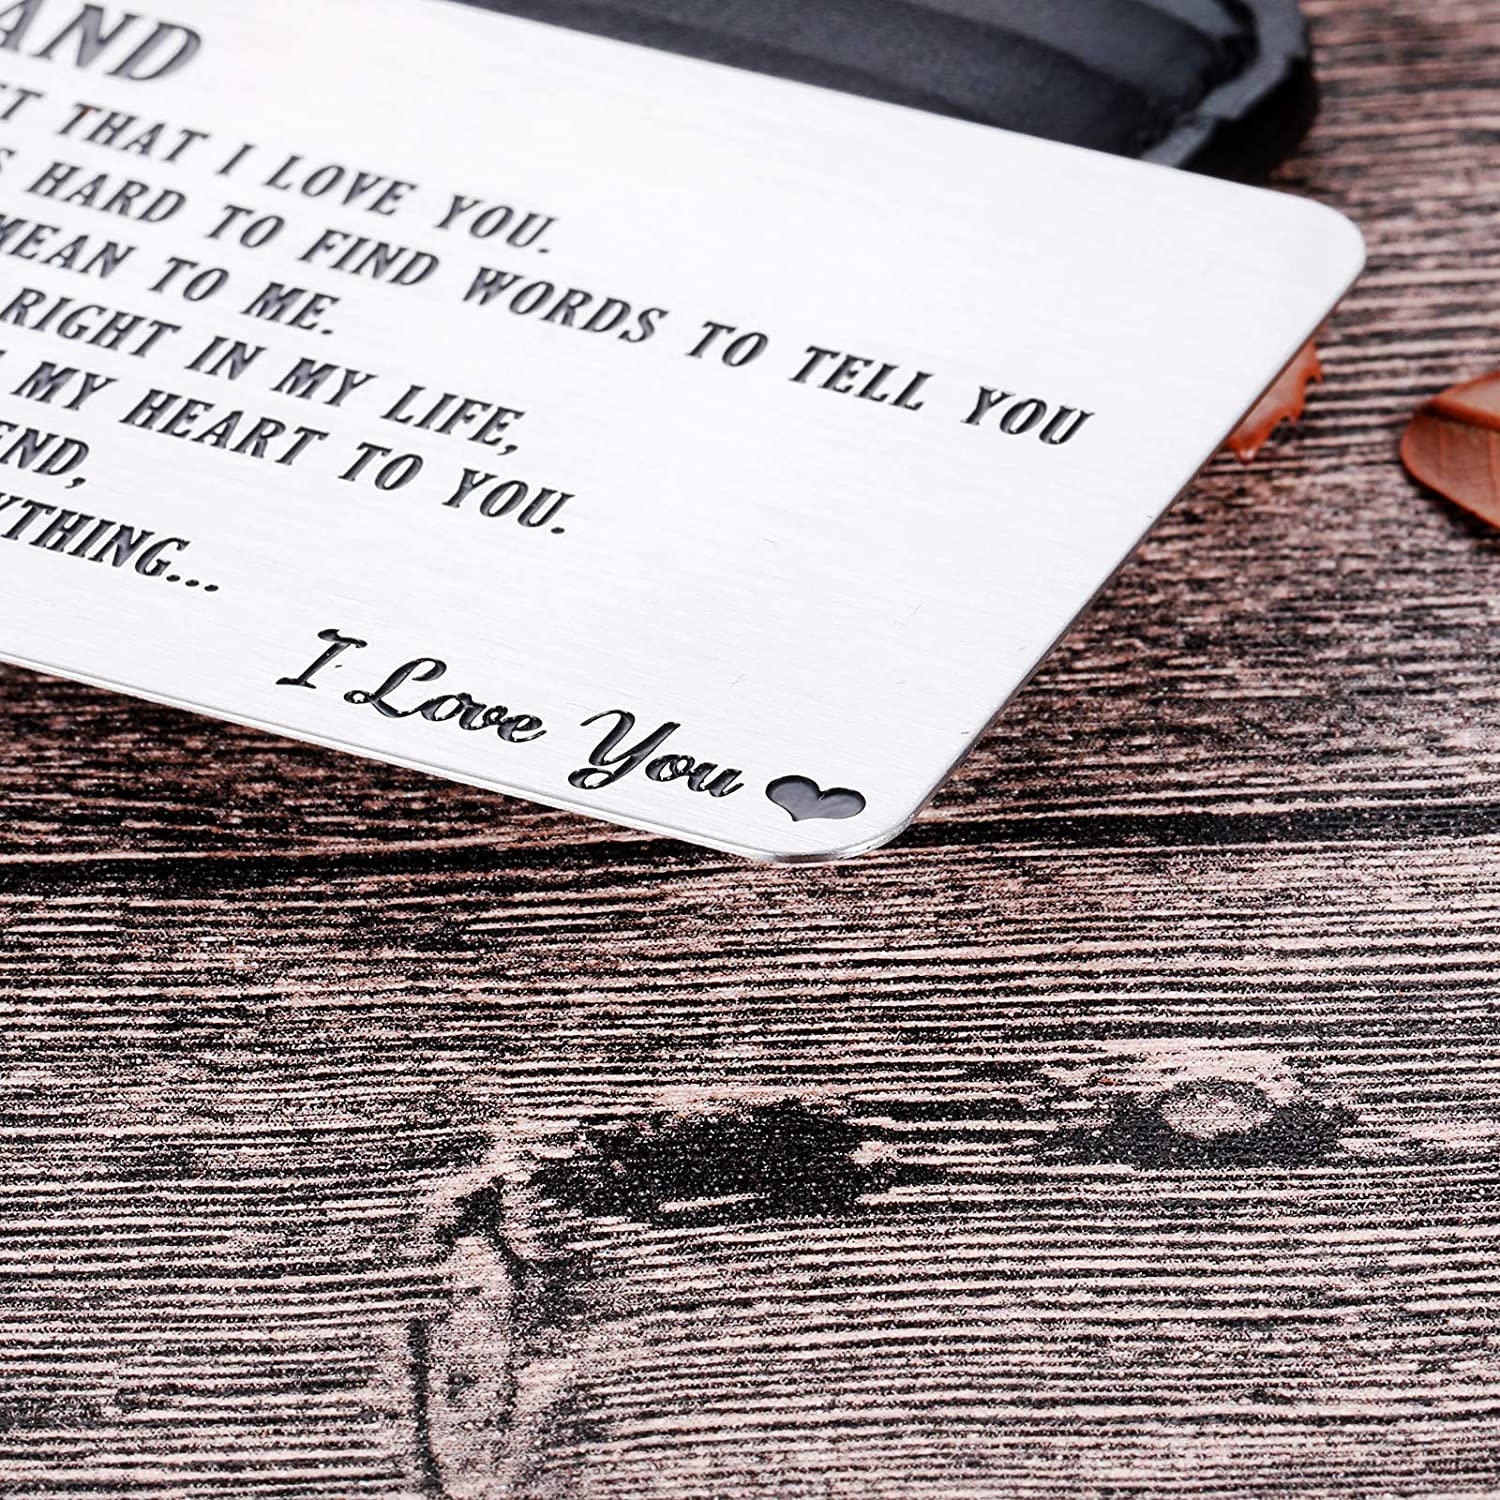 THAT I LOVE YOU.
HARD TO FIND WORDS TO TELL YOU
MEAN TO ME.
RIGHT IN MY LIFE,
MY HEART TO YOU.
END,
YTHING...
I Love You